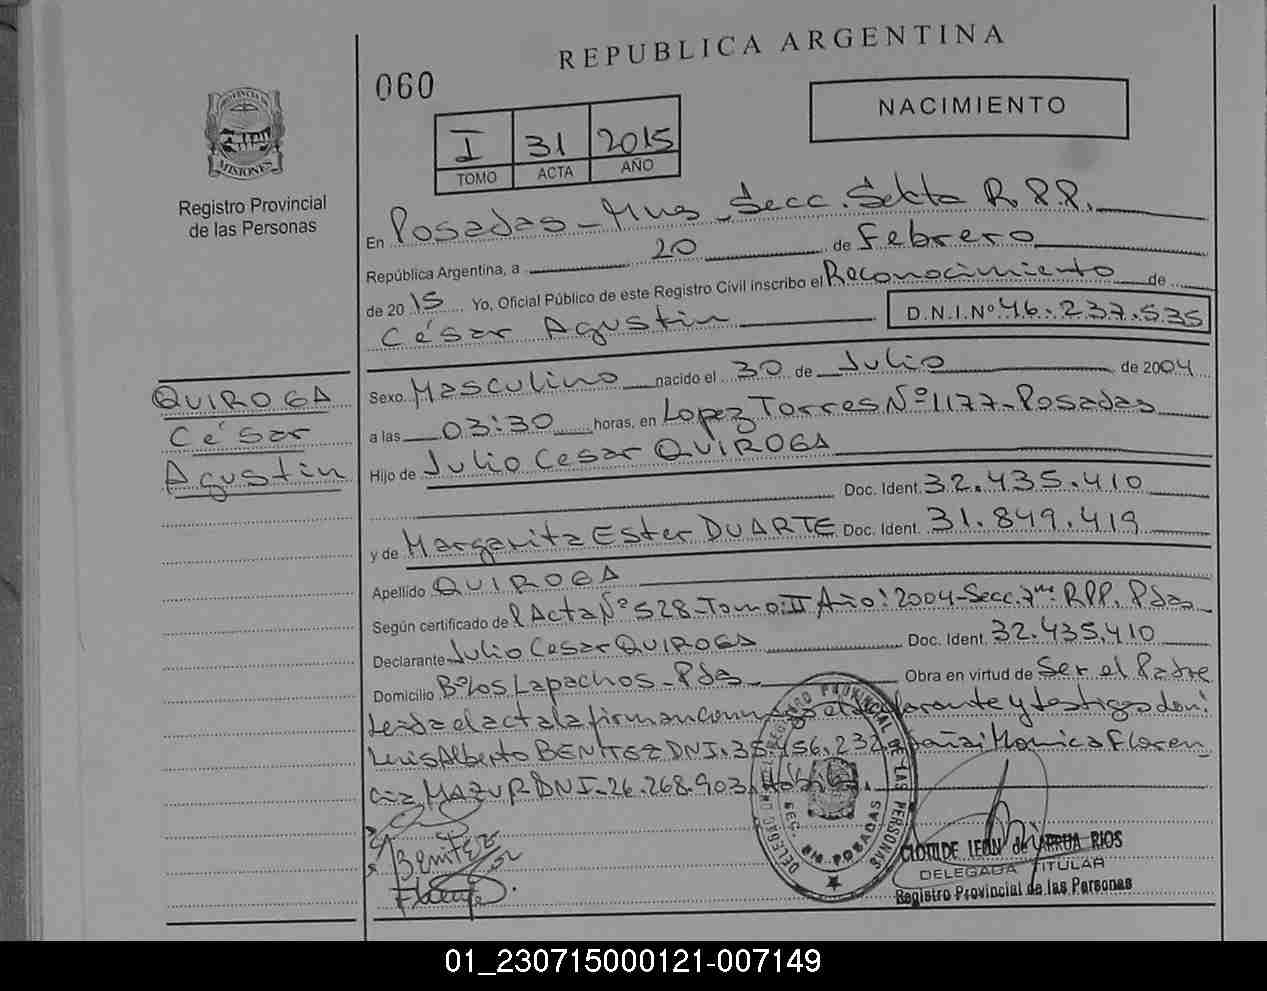 REPUBLICA ARGENTINA
060
NACIMIENTO
I 31 2015
TOMO ACTA AÑO
PROVINCIA DE
MISIONES
Registro Provincial
de las Personas
En Posadas - Mnes - Secc. Sexta R.P.P.
República Argentina, a 20 de Febrero
de 2015 Yo, Oficial Público de este Registro Civil inscribo el Reconocimiento de
César Agustin D.N.I.Nº 46.237.535
QUIROGA
César
Agustin
Sexo Masculino nacido el 30 de Julio de 2004
a las 03:30 horas, en Lopez Torres Nº 1177-Posadas
Hijo de Julio Cesar QUIROGA
Doc. Ident. 32.435.410
y de Margarita Ester DUARTE Doc. Ident. 31.849.419
Apellido QUIROGA
Según certificado de l Acta Nº 528-Tomo: II Año: 2004-Secc. 7ma R.P.P. Pdas
Declarante Julio Cesar QUIROGA Doc. Ident. 32.435.410
Domicilio Bº Los Lapachos - Pdas Obra en virtud de Ser el Padre
Leida el acta la firman conmigo el declarante y testigos don:
Luis Alberto BENITEZ DNI. 35.456.232 Mónica Floren
cia MAZUR DNI-26.268.903.
Benitez
SEC. 6ta POSADAS
CLOTILDE LEON de RIOS
DELEGADA TITULAR
Registro Provincial de las Personas
01_230715000121-007149